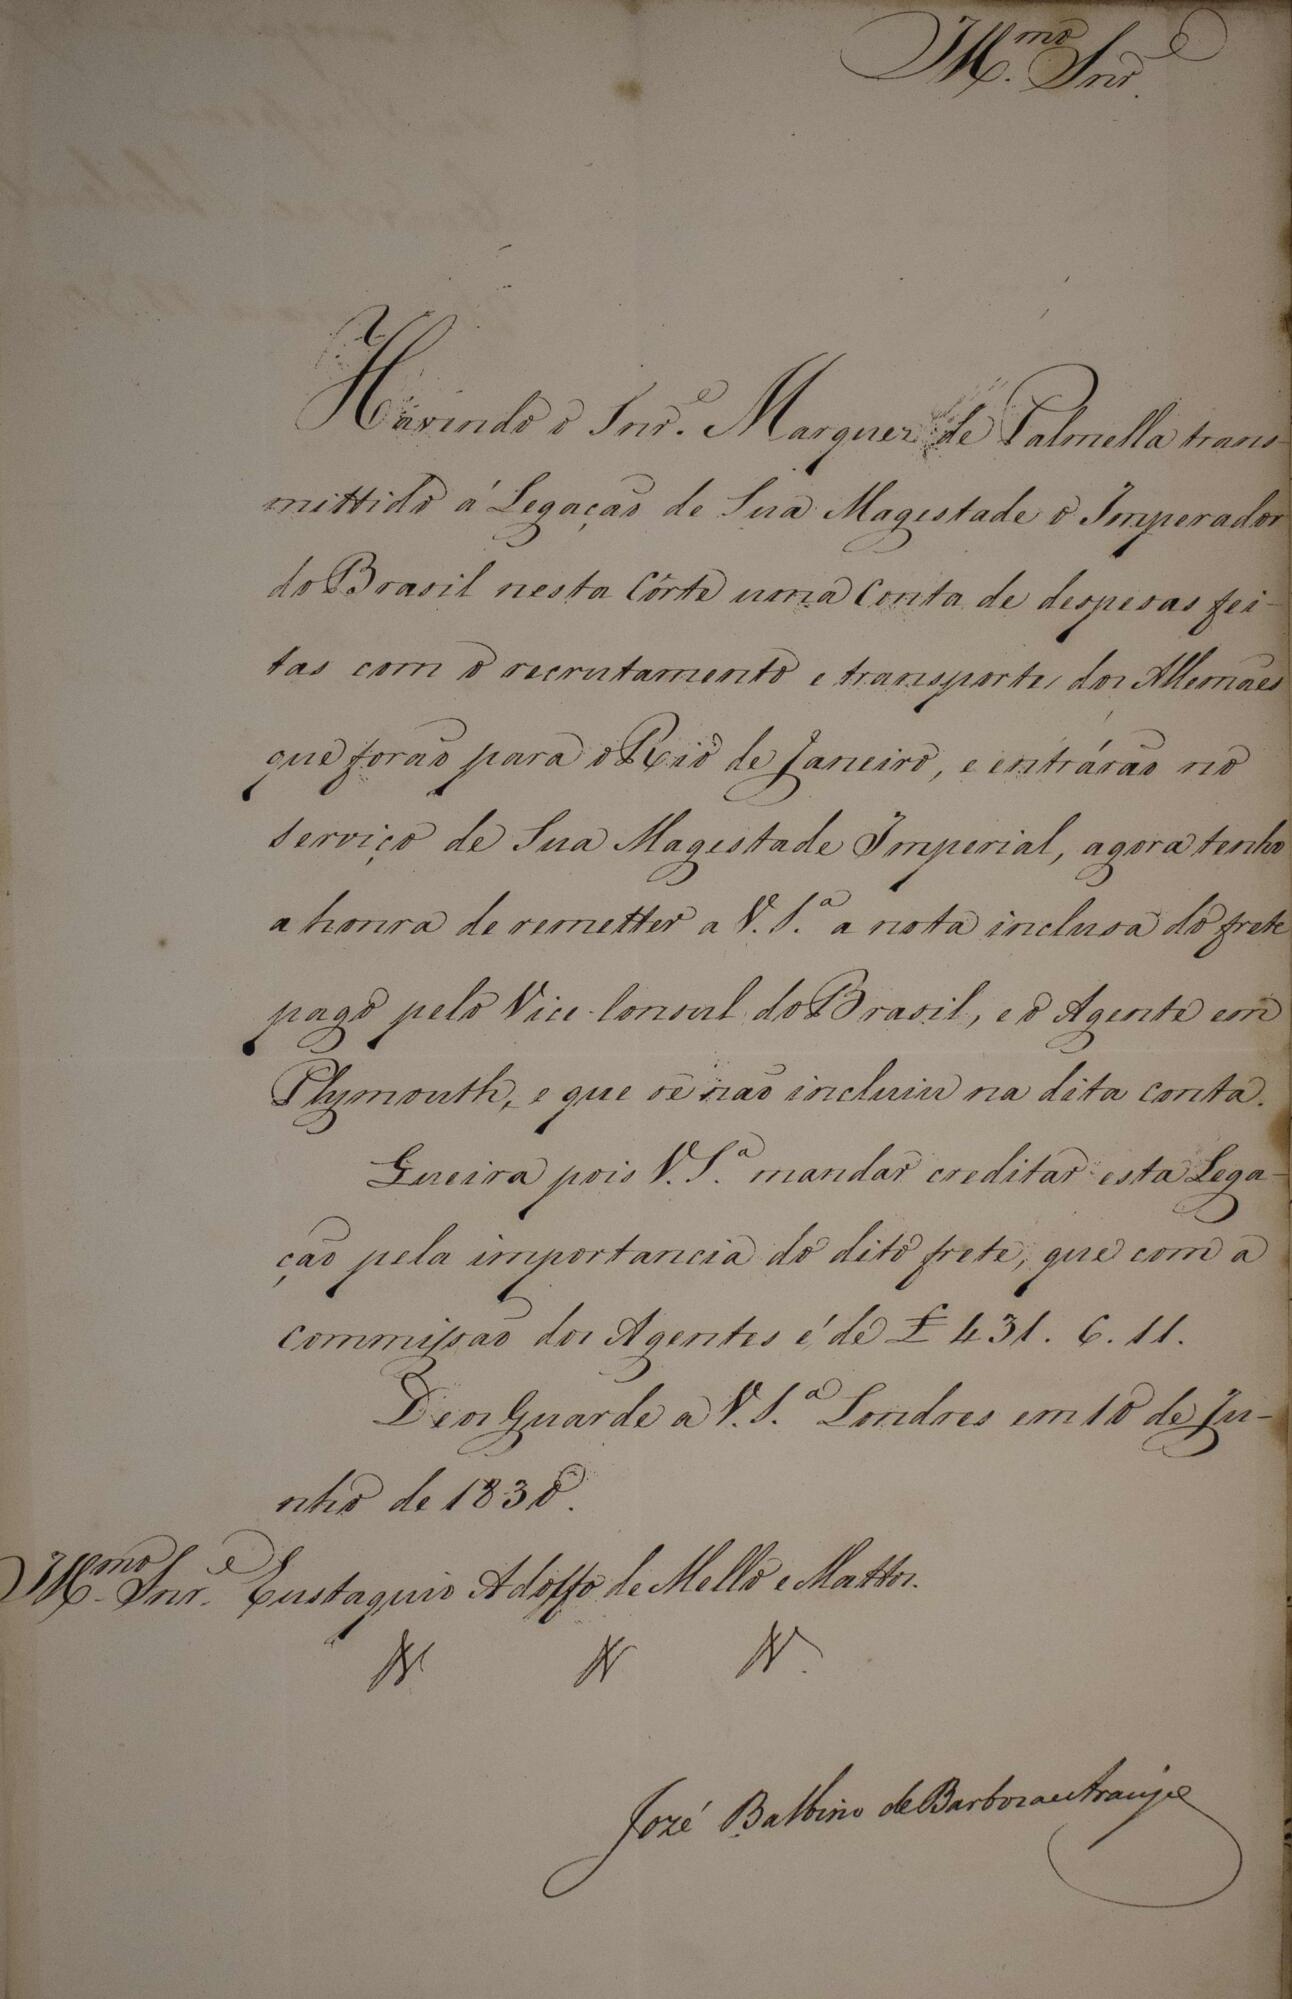 Illmo. Snr.e
Havendo o Snr.e Marquez de Palmella trans-
mittido á Legação de Sua Magestade o Imperador
do Brasil nesta Côrte uma Conta de despesas fei-
tas com o recrutamento e transporte dos Allemães
que forão para o Rio de Janeiro, e entrárão no
serviço de Sua Magestade Imperial, agora tenho
a honra de remetter a V.S.a a nota inclusa do frete
pago pelo Vice-Consul do Brasil, e o Agente em
Plymouth, e que se não incluiu na dita conta.
Queira pois V.S.a mandar creditar esta Lega-
ção pela importancia do dito frete, que com a
commissão dos Agentes é de £ 431. 6. 11.
Deos Guarde a V.S.a Londres em 10 de Ju-
nho de 1830.
Illmo. Snr.e Eustaquio Adolfo de Mello e Mattos.
José Balbino de Barboza e Araujo